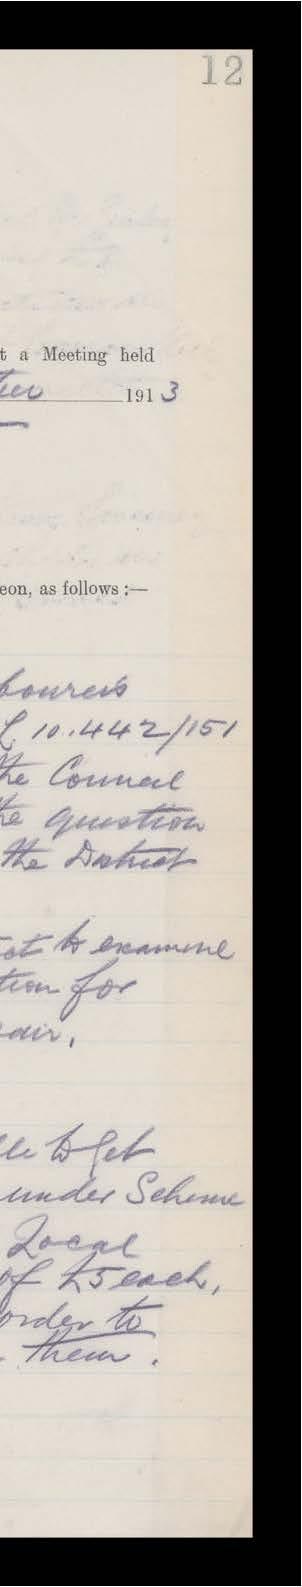 12
t a Meeting held
191 3
eon, as follows :—
bourers
10.442/151
the Council
he question
the District
ct to examine
tion for
air,
le to get
under Scheme
Local
of £5 each,
order to
them.